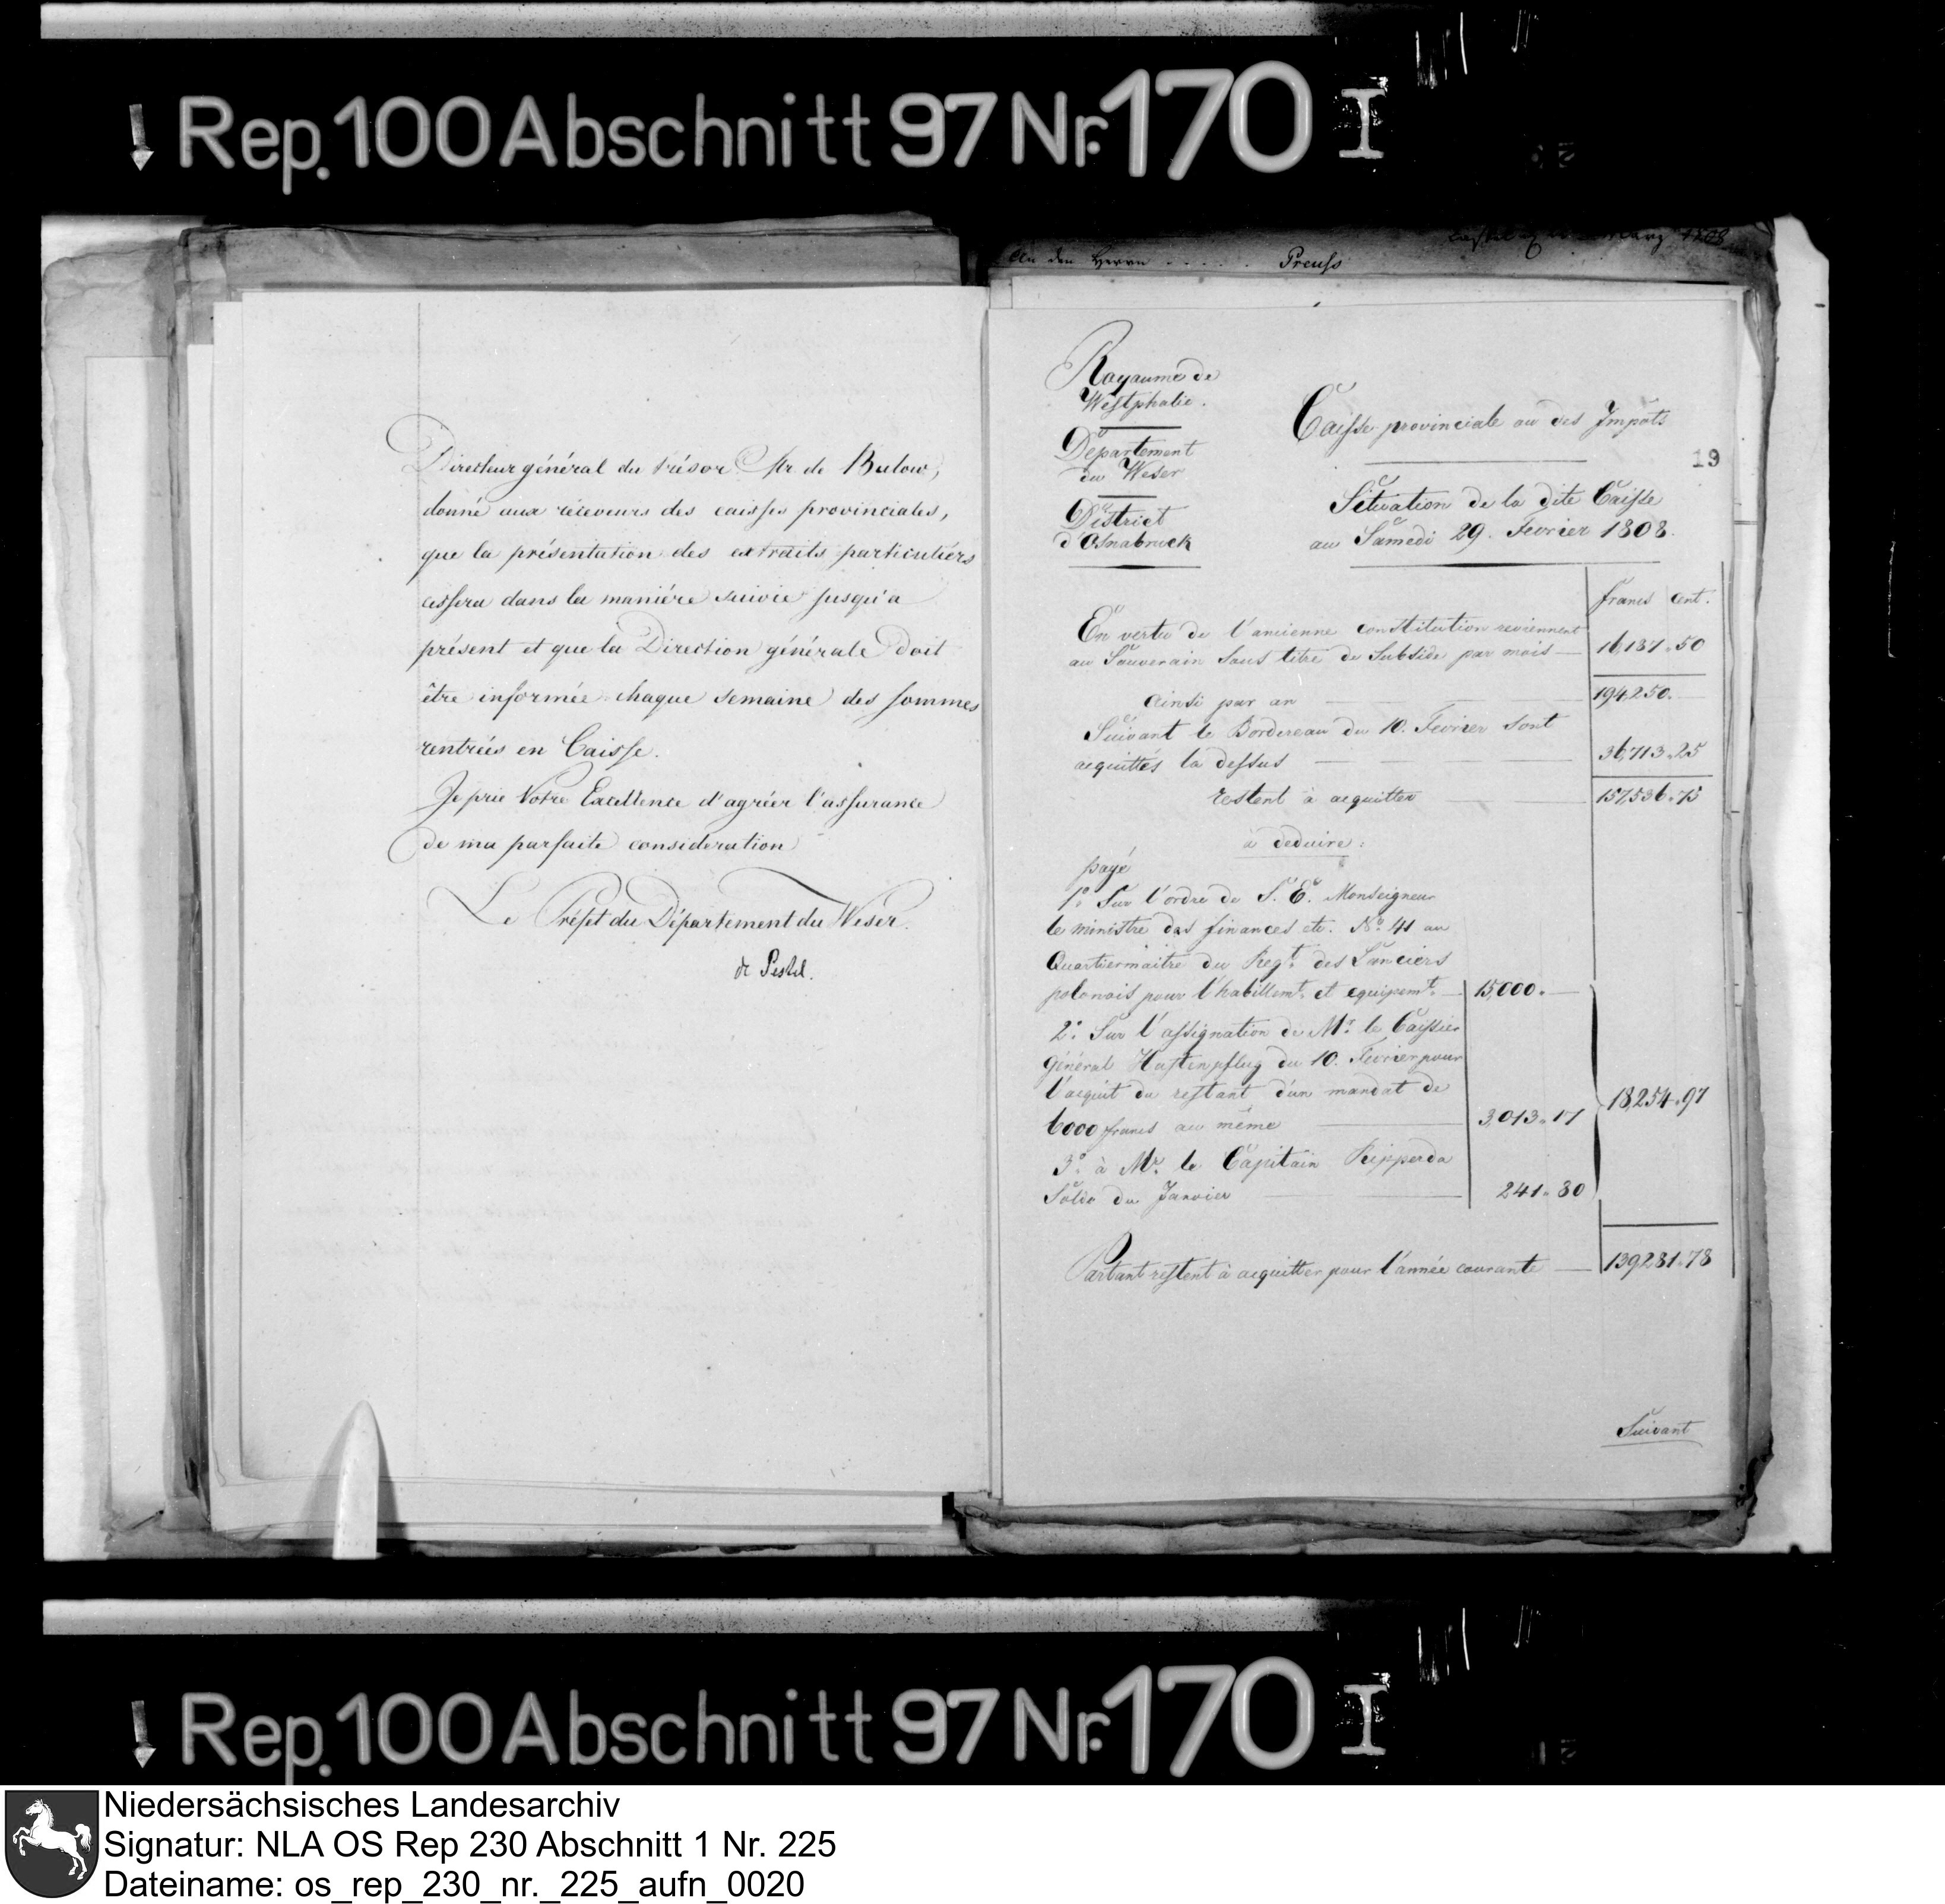 Rep. 100 Abschnitt 97 Nr. 170 I
Directeur général du trésor Mr. de Bulow,
donné aux réceveurs des caisses provinciales,
que la présentation des extraits particuliérs
cessera dans la maniére suivie jusqu'a
présent et que la Direction générale doit
être informée chaque semaine des sommes
rentrées en Caisse.
Je prie Votre Excellence d'agréer l'assurance
de ma parfaite consideration
Le Préfet du Département du Weser.
de Pestel.
An den Herrn . . . . . Preuss
März 1808
Royaume de
Westphalie.
Departement
du Weser
District
d'Osnabruck
Caisse provinciale ou des Impots
19
Situation de la dite Caisse
au Samedi 29. Fevrier 1808.
francs cent.
En vertu de l'ancienne constitution reviennent
au Souverain sous titre de Subside par mois — 16,187.50
ainsi par an — 194,250.—
Suivant le Bordereau du 10. Fevrier sont
acquittés la dessus — 36,713.25
restent à acquitter — 157,536.75
à deduire:
payé
1° Sur l'ordre de S. E. Monseigneur
le ministre des finances etc. No. 41 au
Quartiermaitre du Regt. des Lanciers
polonois pour l'habillemt. et equipemt. — 15,000.—
2° Sur l'assignation de Mr. le Caissier
Général Hastenpflug du 10. Fevrier pour
l'acquit du restant d'un mandat de
6000 francs au même — 3,013.17
18,254.97
3° à Mr. le Capitain Ripperda
Solde du Janvier — 241.80
Partant restent à acquitter pour l'année courante — 139,281.78
Suivant
Rep. 100 Abschnitt 97 Nr. 170 I
Niedersächsisches Landesarchiv
Signatur: NLA OS Rep 230 Abschnitt 1 Nr. 225
Dateiname: os_rep_230_nr._225_aufn_0020